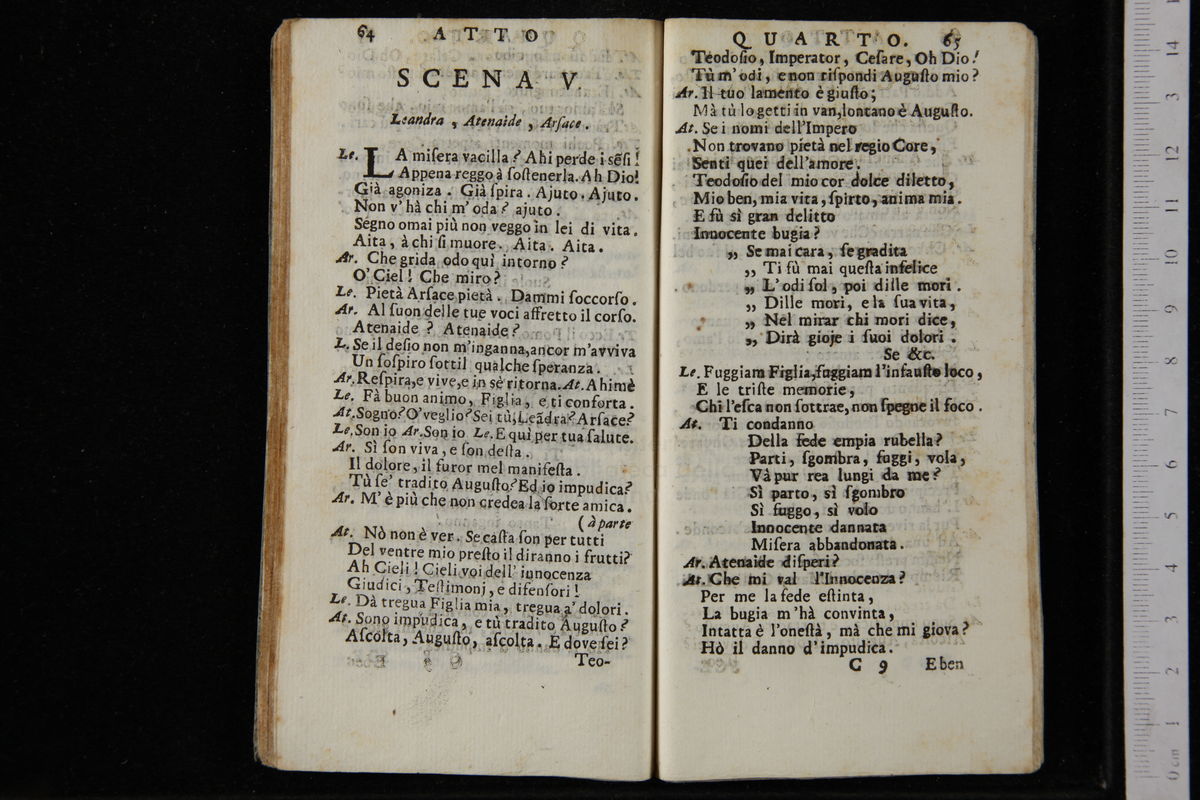 64 ATTO
SCENA V
Leandra, Atenaide, Arſace.
Le. LA miſera vacilla? Ahi perde i sẽſi!
Appena reggo à ſoſtenerla. Ah Dio!
Già agoniza. Già ſpira. Ajuto. Ajuto.
Non v'hà chi m'oda? ajuto.
Segno omai più non veggo in lei di vita.
Aita, à chi ſi muore. Aita. Aita.
Ar. Che grida odo quì intorno?
O' Ciel! Che miro?
Le. Pietà Arſace pietà. Dammi ſoccorſo.
Ar. Al ſuon delle tue voci affretto il corſo.
Atenaide? Atenaide?
L. Se il deſio non m'inganna, ancor m'avviva
Un ſoſpiro ſottil qualche ſperanza.
Ar. Reſpira, e vive, e in sè ritorna. At. Ahimè
Le. Fà buon animo, Figlia, e ti conforta.
At. Sogno? O' veglio? Sei tù, Leãdra? Arſace?
Le. Son io Ar. Son io Le. E quì per tua ſalute.
Ar. Sì ſon viva, e ſon deſta.
Il dolore, il furor mel manifeſta.
Tù ſe' tradito Auguſto? Ed io impudica?
Ar. M'è più che non credea la ſorte amica.
(à parte
At. Nò non è ver. Se caſta ſon per tutti
Del ventre mio preſto il diranno i frutti?
Ah Cieli! Cieli voi dell' innocenza
Giudici, Teſtimonj, e difenſori!
Le. Dà tregua Figlia mia, tregua a' dolori.
At. Sono impudica, e tù tradito Auguſto?
Aſcolta, Auguſto, aſcolta. E dove ſei?
Teo-
QUARTO. 65
Teodoſio, Imperator, Ceſare, Oh Dio!
Tù m'odi, e non riſpondi Auguſto mio?
Ar. Il tuo lamento è giuſto;
Mà tù lo getti in van, lontano è Auguſto.
At. Se i nomi dell'Impero
Non trovano pietà nel regio Core,
Senti quei dell'amore.
Teodoſio del mio cor dolce diletto,
Mio ben, mia vita, ſpirto, anima mia.
E fù sì gran delitto
Innocente bugia?
„ Se mai cara, ſe gradita
„ Ti fù mai queſta infelice
„ L'odi ſol, poi dille mori.
„ Dille mori, e la ſua vita,
„ Nel mirar chi mori dice,
„ Dirà gioje i ſuoi dolori.
Se &c.
Le. Fuggiam Figlia, fuggiam l'infauſto loco,
E le triſte memorie,
Chi l'eſca non ſottrae, non ſpegne il foco.
At. Ti condanno
Della fede empia rubella?
Parti, ſgombra, fuggi, vola,
Và pur rea lungi da me?
Sì parto, sì ſgombro
Sì fuggo, sì volo
Innocente dannata
Miſera abbandonata.
Ar. Atenaide diſperi?
At. Che mi val l'Innocenza?
Per me la fede eſtinta,
La bugia m'hà convinta,
Intatta è l'oneſtà, mà che mi giova?
Hò il danno d'impudica.
C 9 Eben